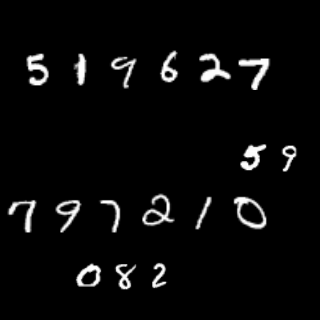 519627
59
797210
082